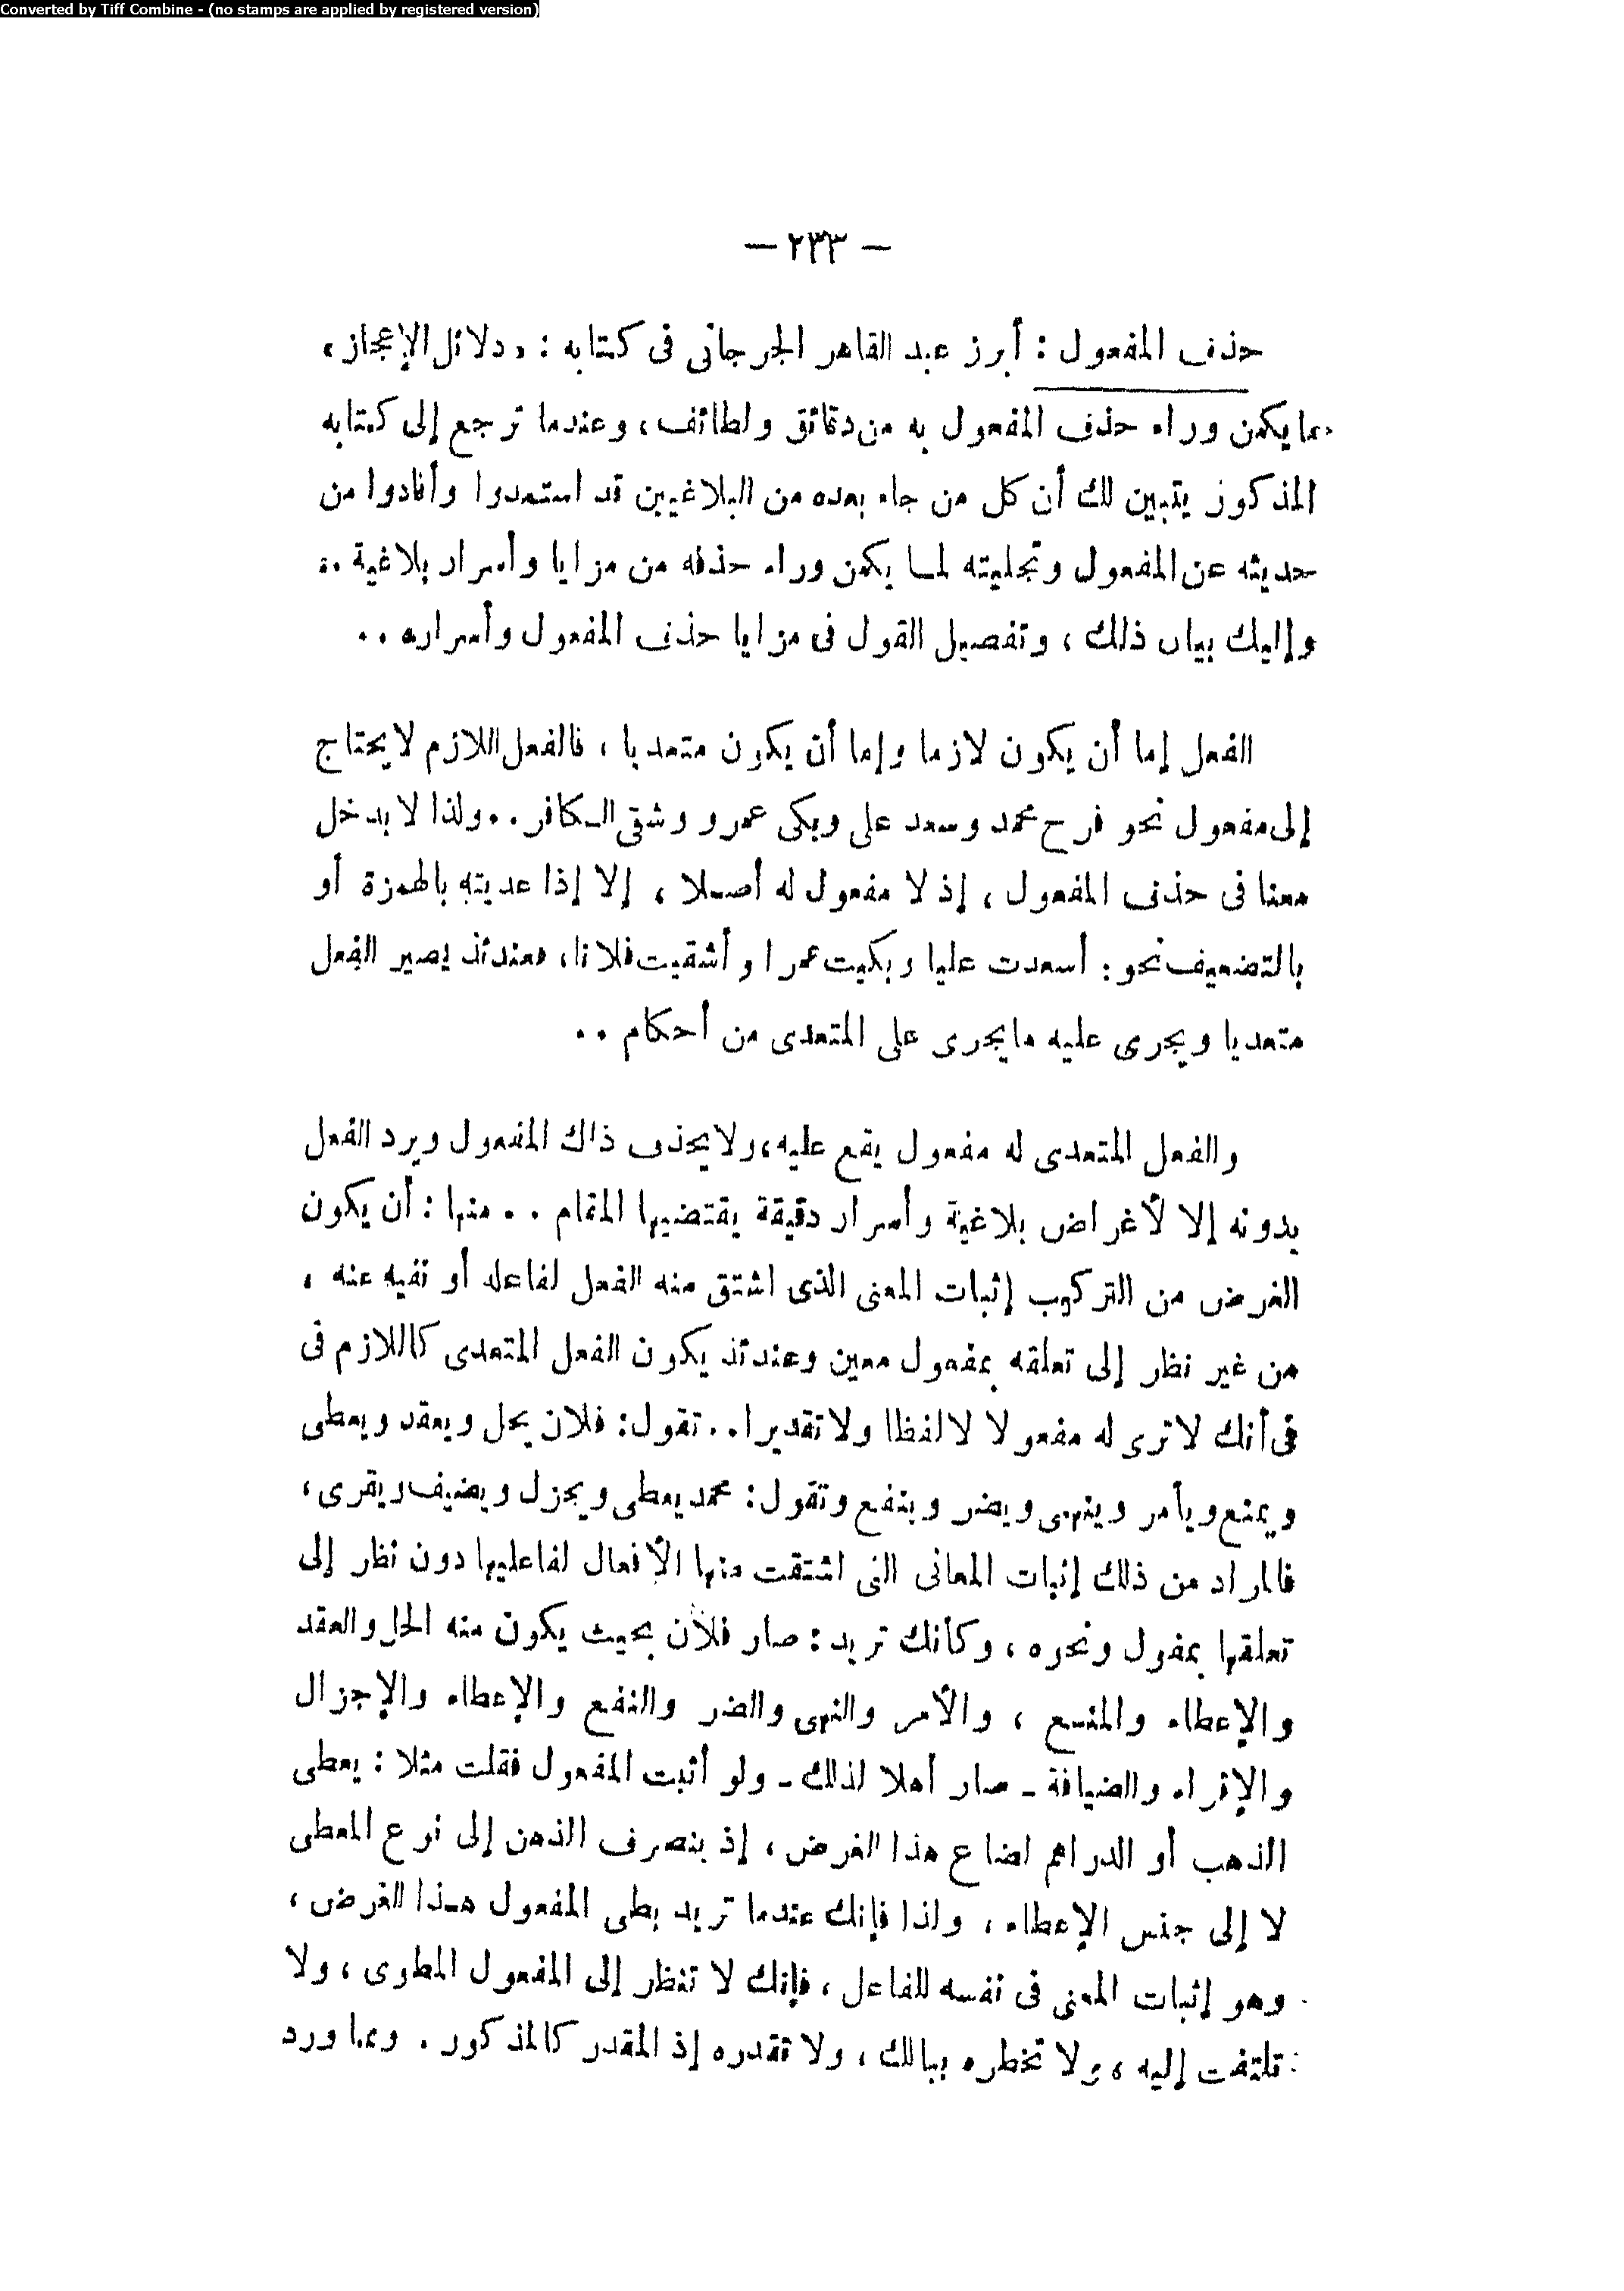 Converted by Tiff Combine - (no stamps are applied by registered version)
— ٢٣٣ —
حذف المفعول : أبرز عبد القاهر الجرجانى فى كتابه : « دلائل الإعجاز »
ما يكمن وراء حذف المفعول به من دقائق ولطائف ، وعندما ترجع إلى كتابه
المذكور يتبين لك أن كل من جاء بعده من البلاغيين قد استمدوا وأفادوا من
حديثه عن المفعول وتجليته لما يكمن وراء حذفه من مزايا وأسرار بلاغية ..
وإليك بيان ذلك ، وتفصيل القول فى مزايا حذف المفعول وأسراره ..
الفعل إما أن يكون لازما وإما أن يكون متعديا ، فالفعل اللازم لا يحتاج
إلى مفعول نحو فرح محمد وسعد على وبكى عمرو وشقى الكافر .. ولذا لا يدخل
معنا فى حذف المفعول ، إذ لا مفعول له أصلا ، إلا إذا عديته بالهمزة أو
بالتضعيف نحو : أسعدت عليا وبكيت عمرا وأشقيت فلانا ، فعندئذ يصير الفعل
متعديا ويجرى عليه ما يجرى على المتعدى من أحكام ..
والفعل المتعدى له مفعول يقع عليه ، ولا يحذف ذلك المفعول ويرد الفعل
بدونه إلا لأغراض بلاغية وأسرار دقيقة يقتضيها المقام .. منها : أن يكون
الغرض من التركيب إثبات المعنى الذى اشتق منه الفعل لفاعله أو نفيه عنه ،
من غير نظر إلى تعلقه بمفعول معين وعندئذ يكون الفعل المتعدى كاللازم فى
فى أنك لا ترى له مفعولا لا لفظا ولا تقديرا .. تقول : فلان يحل ويعقد ويعطى
ويمنع ويأمر وينهى ويضر وينفع وتقول : محمد يعطى ويجزل ويضيف ويقرى ،
فالمراد من ذلك إثبات المعانى التى اشتقت منها الأفعال لفاعليها دون نظر إلى
تعلقها بمفول ونحوه ، وكأنك تريد : صار فلان بحيث يكون منه الحل والعقد
والإعطاء والمنع ، والأمر والنهى والضر والنفع والإعطاء والإجزال
والإقراء والضيافة - صار أهلا لذلك - ولو أثبت المفعول فقلت مثلا : يعطى
الذهب أو الدراهم لضاع هذا الغرض ، إذ ينصرف الذهن إلى نوع المعطى
لا إلى جنس الإعطاء ، ولذا فإنك عندما تريد بطى المفعول هذا الغرض ،
وهو إثبات المعنى فى نفسه للفاعل ، فإنك لا تنظر إلى المفعول المطوى ، ولا
تلتفت إليه ، ولا تخطره ببالك ، ولا تقدره إذ المقدر كالمذكور . ومما ورد